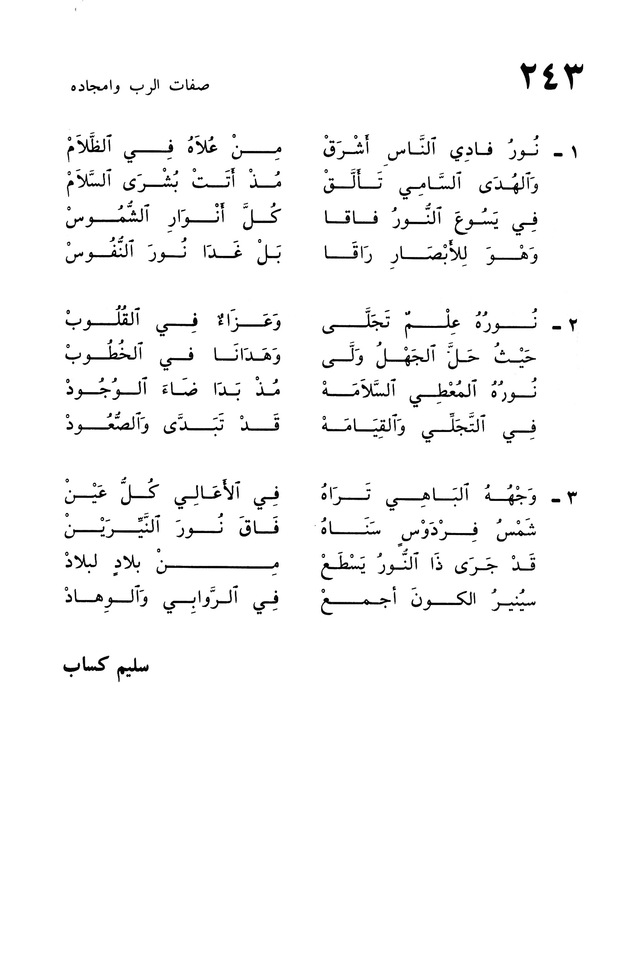 ٢٤٣
صفات الرب وامجاده
١ ـ نُورُ فادِي ٱلنَّاسِ أَشْرَقْ مِنْ عُلاَهُ فِي ٱلظَّلاَمْ
وَٱلهُدَى ٱلسَّامِي تَأَلَّقْ مُذْ أَتَتْ بُشْرَى ٱلسَّلاَمْ
فِي يَسُوعَ ٱلنُّورُ فاقا كُلَّ أَنْوَارِ ٱلشُّمُوسْ
وَهْوَ لِلأَبْصَارِ رَاقَا بَلْ غَدَا نُورَ ٱلنُّفُوسْ
٢ ـ نُورُهُ عِلْمٌ تَجَلَّى وَعَزَاءٌ فِي ٱلقُلُوبْ
حَيْثُ حَلَّ ٱلجَهْلُ وَلَّى وَهَدَانَا في ٱلخُطُوبْ
نُورُهُ ٱلمُعْطِي ٱلسَّلاَمَهْ مُذْ بَدَا ضَاءَ ٱلوُجُودْ
فِي ٱلتَّجَلِّي وَٱلقِيَامَهْ قَدْ تَبَدَّى وَٱلصُّعُودْ
٣ ـ وَجْهُهُ ٱلبَاهِي تَرَاهُ فِي ٱلأَعَالِي كُلُّ عَيْنْ
شَمْسُ فِرْدَوْسٍ سَنَاهُ فَاقَ نُورَ ٱلنَّيِّرَيْنْ
قَدْ جَرَى ذَا ٱلنُّورُ يَسْطَعْ مِنْ بلادٍ لبلادْ
سيُنيرُ الكونَ أجمعْ فِي ٱلرَّوابِي وَٱلوِهادْ
سليم كساب